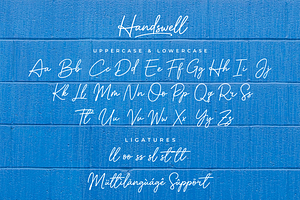 Handswell
UPPERCASE & LOWERCASE
Aa Bb Cc Dd Ee Ff Gg Hh Ii Jj
Kk Ll Mm Nn Oo Pp Qq Rr Ss
Tt Uu Vv Ww Xx Yy Zz
LIGATURES
ll oo ss sl st tt
Multilanguage Support